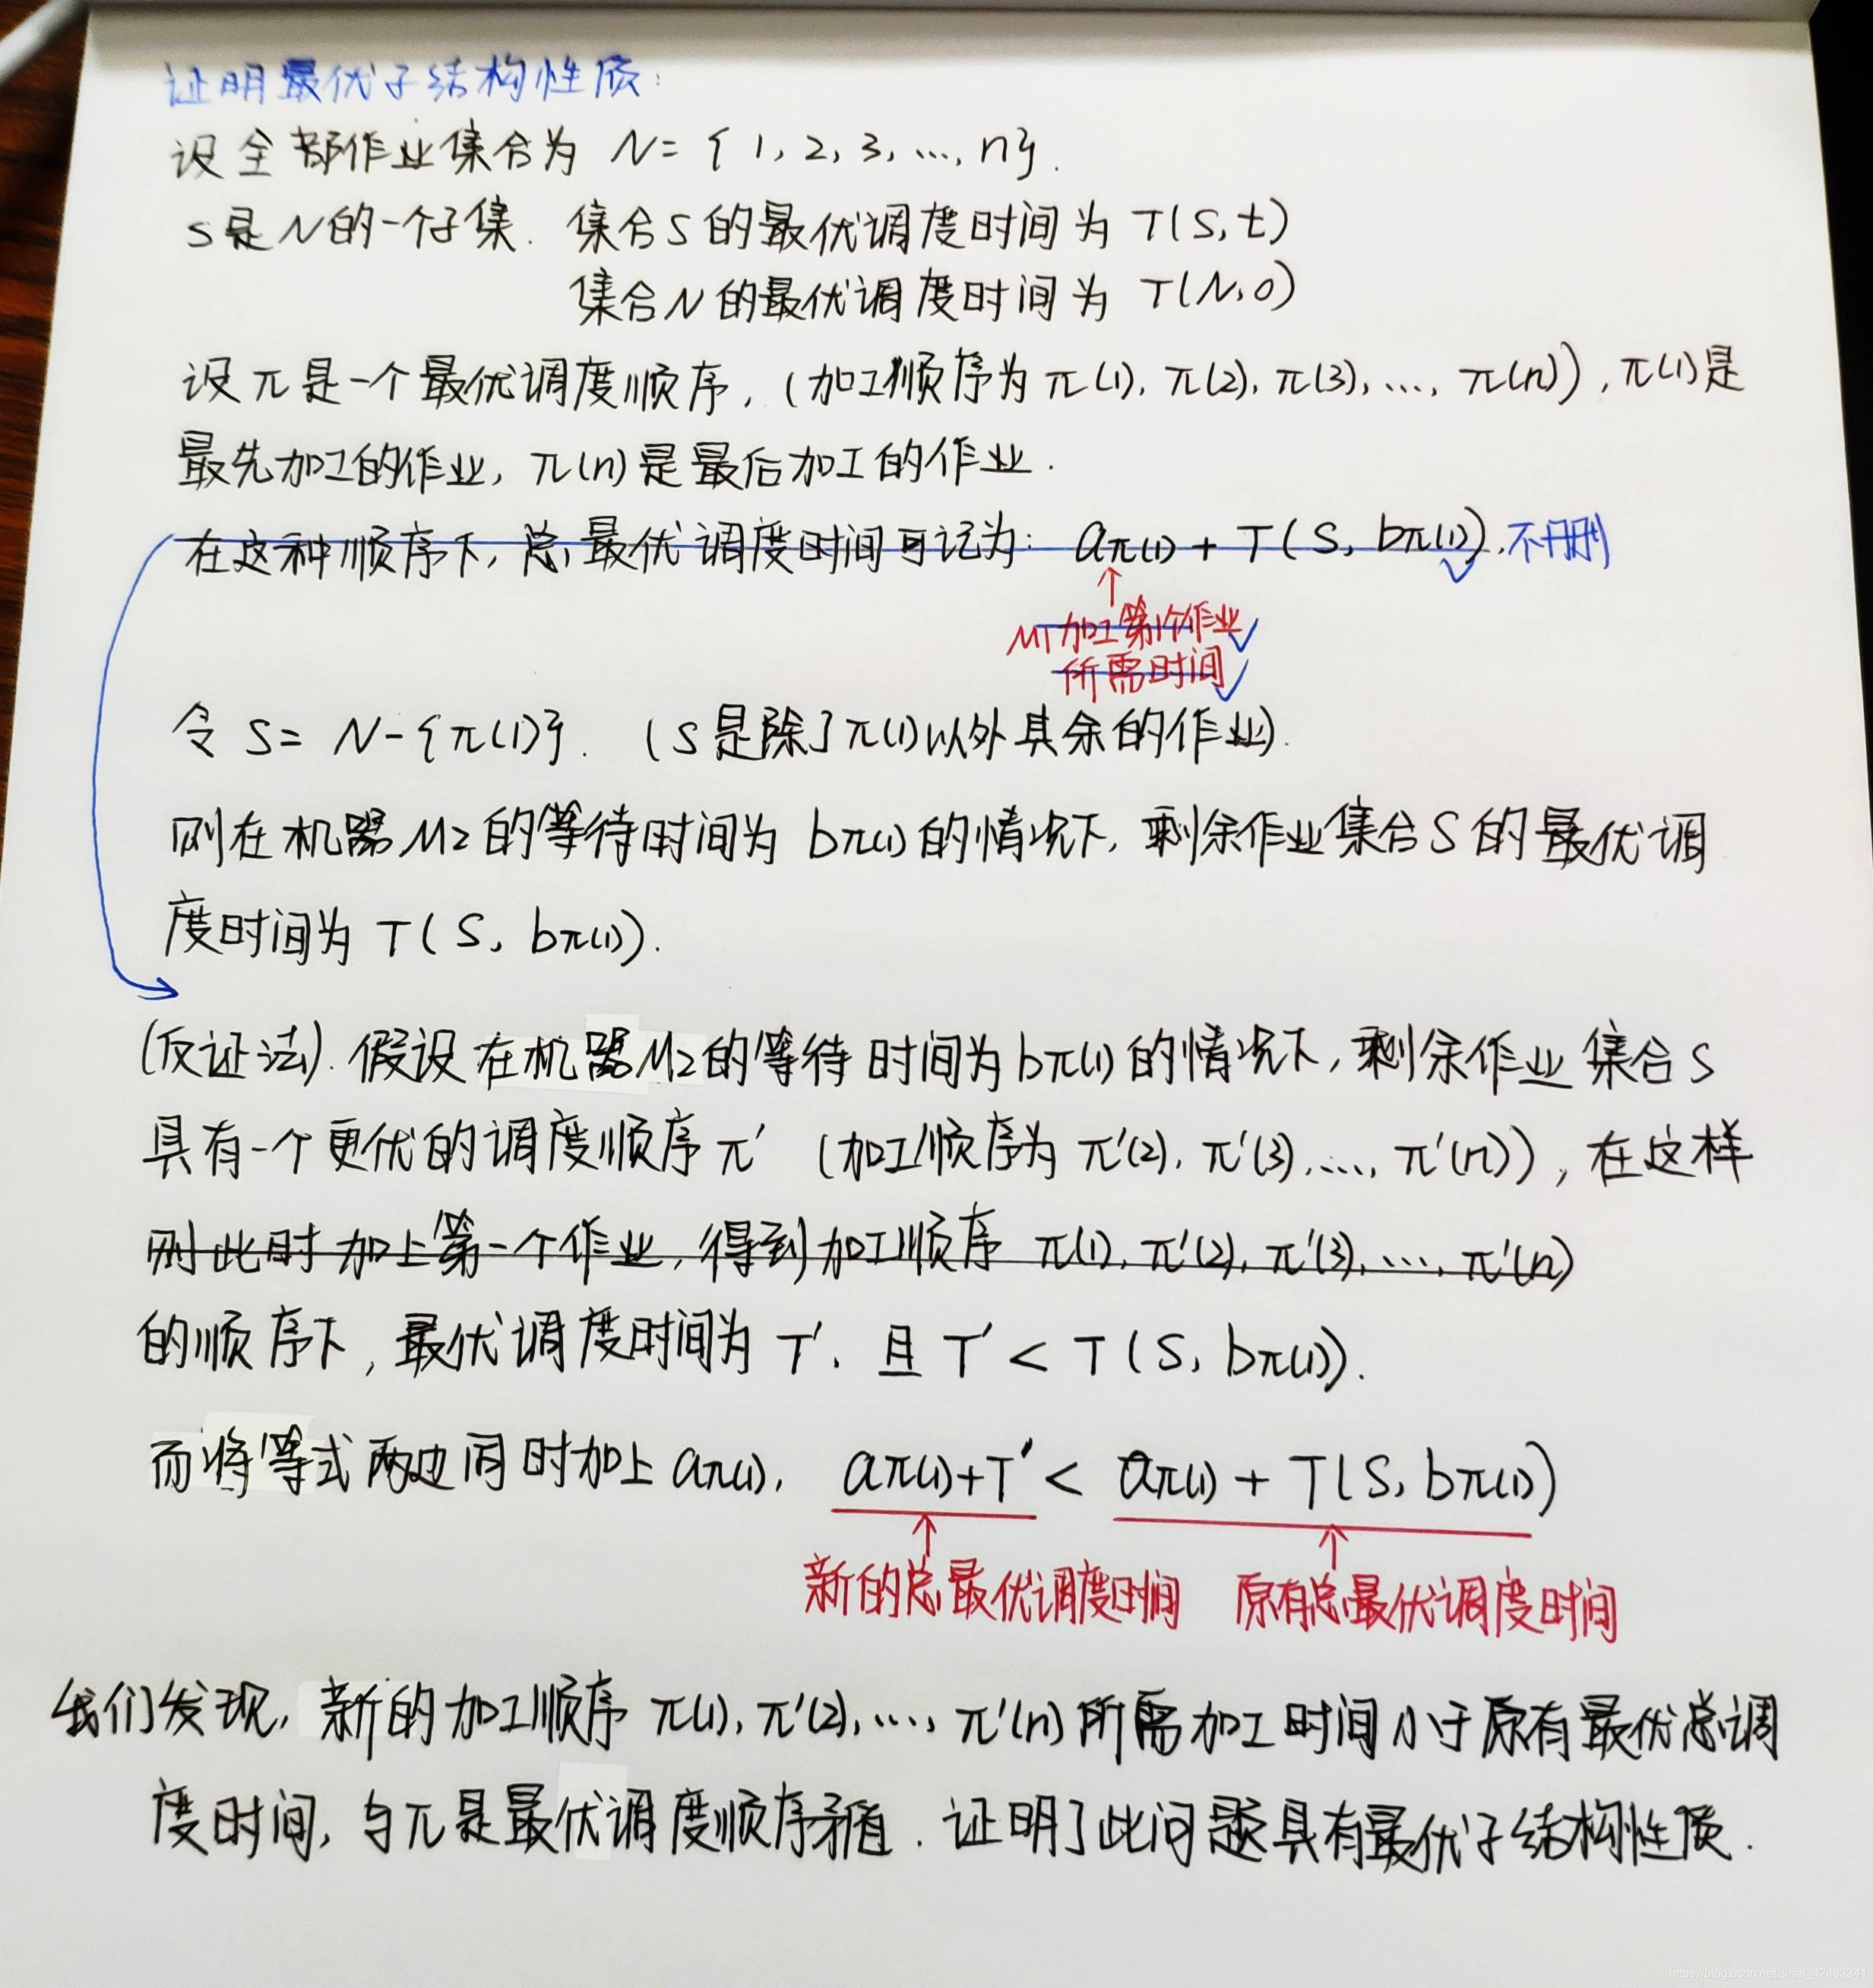 证明最优子结构性质:
设全部作业集合为 N={1,2,3,...,n}.
S是N的一个子集. 集合S的最优调度时间为 T(S,t)
集合N的最优调度时间为 T(N,0)
设π是一个最优调度顺序,(加工顺序为π(1),π(2),π(3),...,π(n)),π(1)是
最先加工的作业,π(n)是最后加工的作业.
在这种顺序下,总最优调度时间可记为: aπ(1)+T(S,bπ(1)).不删
↑
M1加工第1个作业
所需时间
令 S=N-{π(1)}. (S是除了π(1)以外其余的作业).
则在机器M2的等待时间为 bπ(1)的情况下,剩余作业集合S的最优调
度时间为 T(S,bπ(1)).
(反证法).假设在机器M2的等待时间为bπ(1)的情况下,剩余作业集合S
具有一个更优的调度顺序π′ (加工顺序为π′(2),π′(3),...,π′(n)),在这样
则此时加上第一个作业,得到加工顺序 π(1),π′(2),π′(3),...,π′(n)
的顺序下,最优调度时间为T′.且T′<T(S,bπ(1)).
而将等式两边同时加上aπ(1), aπ(1)+T′<aπ(1)+T(S,bπ(1))
↑ ↑
新的总最优调度时间 原有总最优调度时间
我们发现,新的加工顺序π(1),π′(2),...,π′(n)所需加工时间小于原有最优总调
度时间,与π是最优调度顺序矛盾.证明了此问题具有最优子结构性质.
https://blog.csdn.net/sinat_42483341